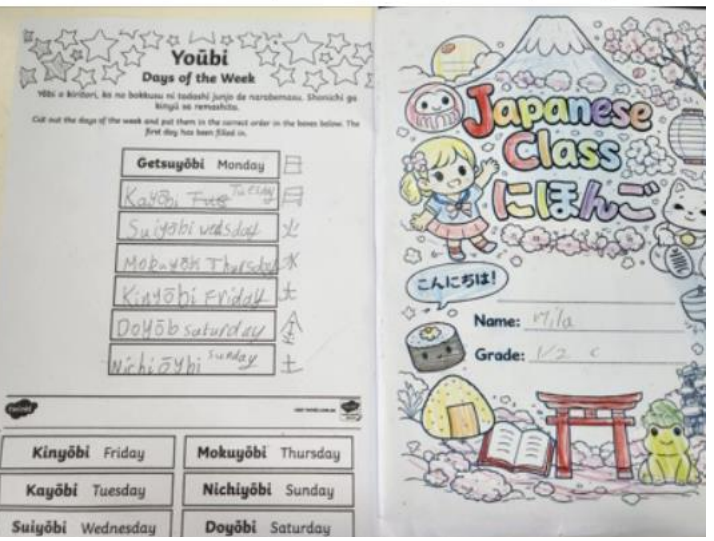 Yōubi
Days of the Week
Yōbi o kiritori, ka no bokkusu ni tadashī junjo de narabemasu. Shonichi ga
kinyū sa remashita.
Cut out the days of the week and put them in the correct order in the boxes below. The
first day has been filled in.
Getsuyōbi Monday 日
Kayōbi Tue Tuesday 月
Suiyōbi wedsday 火
Mobuyōbi Thursday 水
Kinyōbi Friday 木
Doyōb saturday 金
Nichiōybi sunday 土
Kinyōbi Friday
Mokuyōbi Thursday
Kayōbi Tuesday
Nichiyōbi Sunday
Suiyōbi Wednesday
Doyōbi Saturday
Japanese
Class
にほんご
こんにちは!
Name: Mila
Grade: 1/2 c